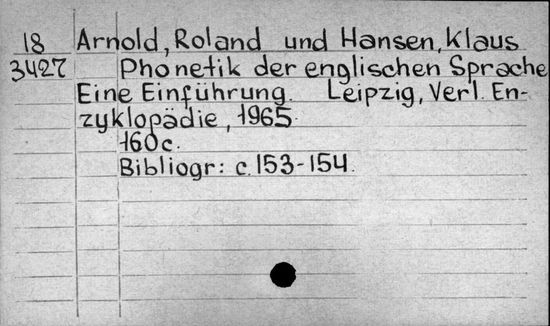 18 Arnold, Roland und Hansen, Klaus
3427 Phonetik der englischen Sprache
Eine Einführung. Leipzig, Verl. En-
zyklopädie, 1965.
160c.
Bibliogr: c. 153-154.